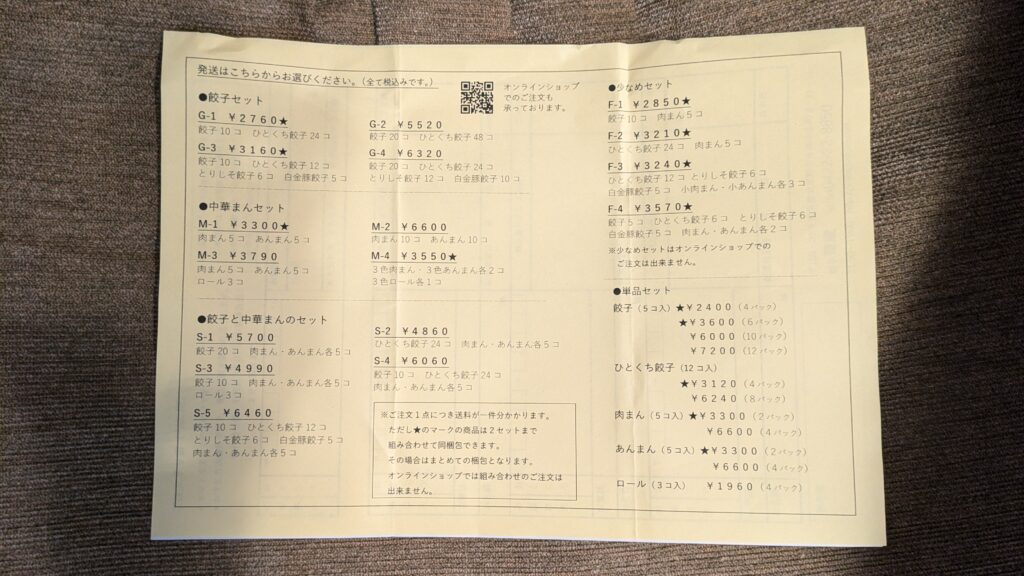 発送はこちらからお選びください。（全て税込みです。）
オンラインショップ
でのご注文も
承っております。
●餃子セット
G-1 ￥2760★
餃子10コ ひとくち餃子24コ
G-2 ￥5520
餃子20コ ひとくち餃子48コ
G-3 ￥3160★
餃子10コ ひとくち餃子12コ
とりしそ餃子6コ 白金豚餃子5コ
G-4 ￥6320
餃子20コ ひとくち餃子24コ
とりしそ餃子12コ 白金豚餃子10コ
●中華まんセット
M-1 ￥3300★
肉まん5コ あんまん5コ
M-2 ￥6600
肉まん10コ あんまん10コ
M-3 ￥3790
肉まん5コ あんまん5コ
ロール3コ
M-4 ￥3550★
3色肉まん・3色あんまん各2コ
3色ロール各1コ
●餃子と中華まんのセット
S-1 ￥5700
餃子20コ 肉まん・あんまん各5コ
S-2 ￥4860
ひとくち餃子24コ 肉まん・あんまん各5コ
S-3 ￥4990
餃子10コ 肉まん・あんまん各5コ
ロール3コ
S-4 ￥6060
餃子10コ ひとくち餃子24コ
肉まん・あんまん各5コ
S-5 ￥6460
餃子10コ ひとくち餃子12コ
とりしそ餃子6コ 白金豚餃子5コ
肉まん・あんまん各5コ
※ご注文1点につき送料が一件分かかります。
ただし★のマークの商品は2セットまで
組み合わせて同梱包できます。
その場合はまとめての梱包となります。
オンラインショップでは組み合わせのご注文は
出来ません。
●少なめセット
F-1 ￥2850★
餃子10コ 肉まん5コ
F-2 ￥3210★
ひとくち餃子24コ 肉まん5コ
F-3 ￥3240★
ひとくち餃子12コ とりしそ餃子6コ
白金豚餃子5コ 小肉まん・小あんまん各3コ
F-4 ￥3570★
餃子5コ ひとくち餃子6コ とりしそ餃子6コ
白金豚餃子5コ 肉まん・あんまん各2コ
※少なめセットはオンラインショップでの
ご注文は出来ません。
●単品セット
餃子（5コ入）★￥2400（4パック）
★￥3600（6パック）
￥6000（10パック）
￥7200（12パック）
ひとくち餃子（12コ入）
★￥3120（4パック）
￥6240（8パック）
肉まん（5コ入）★￥3300（2パック）
￥6600（4パック）
あんまん（5コ入）★￥3300（2パック）
￥6600（4パック）
ロール（3コ入） ￥1960（4パック）